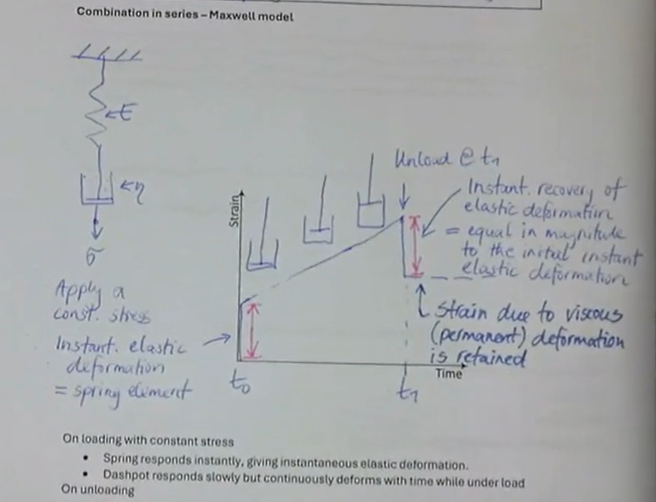 Combination in series – Maxwell model
E
η
σ
Apply a
const. stress
Instant. elastic
deformation
= spring element
Strain
Unload @ t1
Instant. recovery of
elastic deformation
= equal in magnitude
to the initial instant
elastic deformation
Strain due to viscous
(permanent) deformation
is retained
Time
t0
t1
On loading with constant stress
• Spring responds instantly, giving instantaneous elastic deformation.
• Dashpot responds slowly but continuously deforms with time while under load
On unloading